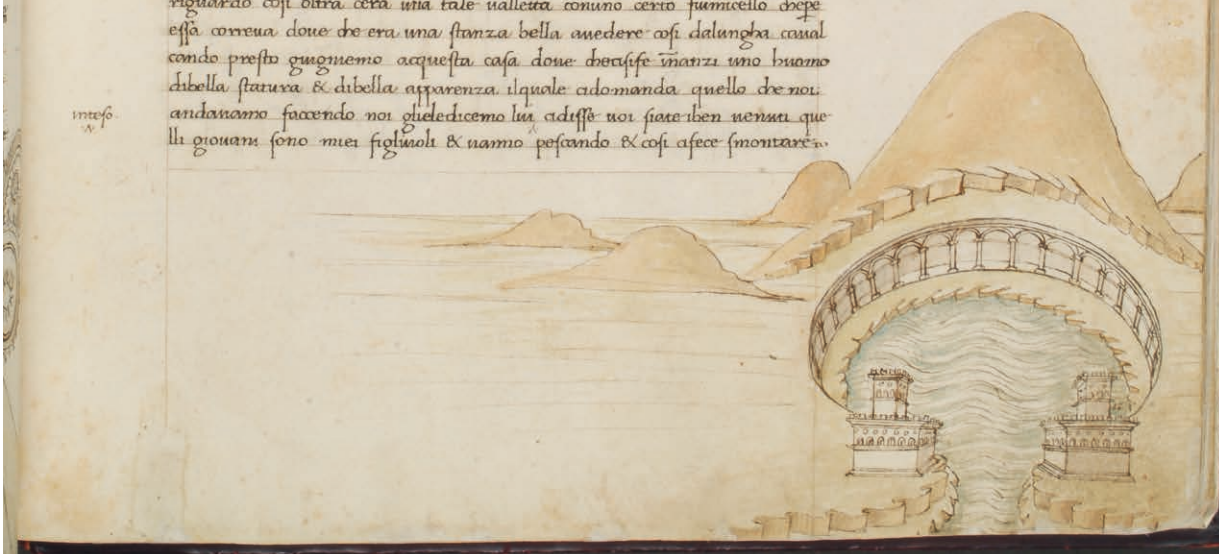 riguardo cosi oltra cera una tale valletta conuno certo fiumicello che per
essa correva dove che era una stanza bella avedere cosi dalungha caval
cando presto giugniemo acquesta casa dove checisife inanzi uno huomo
dibella statura & dibella apparenza ilquale cidomanda quello che noi
andavamo faccendo noi glieledicemo lui cidisse voi siate iben venuti que
lli giovani sono miei figliuoli & vanno pescando & cosi cifece smontare
inteso